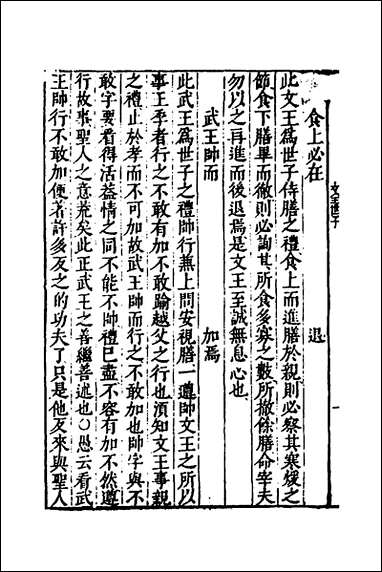 文王世子
一
食上必在　退
此文王爲世子侍膳之禮食上而進膳於親則必察其寒煖之
節食下膳畢而徹則必詢其所食多寡之數所撤餘膳命宰夫
勿以之再進而後退焉是文王至誠無息心也
武王帥而　加焉
此武王爲世子之禮帥行無上問安視膳一遵帥文王之所以
事王季者行之不敢有加不敢踰越父之行也須知文王事親
之禮止於孝而不可加故武王帥而行之不敢加也帥字與不
敢字要看得活葢情之同不能不帥禮已盡不容有加不然遵
行故事聖人之意荒矣此正武王之善繼善述也○愚云看武
王帥行不敢加便著許多友之的功夫了只是他友來與聖人